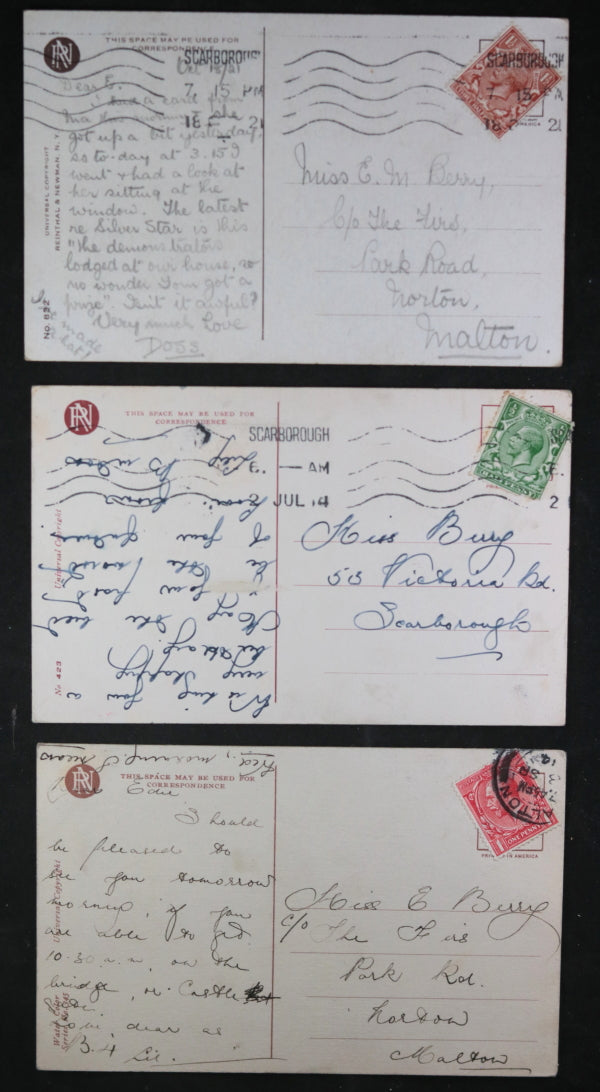 THIS SPACE MAY BE USED FOR
CORRESPONDENCE
RN
SCARBOROUGH
7 15 PM
18 21
Oct 18/21
Dear E.
I had a card from
Ma this morning she
got up a bit yesterday,
so to-day at 3.15 I
went & had a look at
her sitting at the
window. The latest
re Silver Star is this
"The demonstrators
lodged at our house, so
no wonder Tom got a
prize". Isn't it awful?
Very much Love
Doss
made
hat!
UNIVERSAL COPYRIGHT
REINTHAL & NEWMAN, N. Y.
No. 822
SCARBOROUGH
7 15 PM
18 21
AMERICA
Miss E. M. Berry,
C/o The Firs,
Park Road,
Norton,
Malton.
RN
THIS SPACE MAY BE USED FOR
CORRESPONDENCE
SCARBOROUGH
9. — AM
2 JUL 14
Wishing you a
very Happy
birthday.
May the bud
of your
be the
of your future
Universal Copyright
No 423
HALFPENNY
2
Miss Berry
53 Victoria Rd.
Scarborough
Fred, morning
RN
THIS SPACE MAY BE USED FOR
CORRESPONDENCE
Edie
Should
be pleased to
see you tomorrow
morning, if you
are able to
10-30 a.m, on the
bridge, nr Castle
dear as
B. 4 Lil.
Universal Copyright
Water Color
Series No.
ALTON
7.45 PM
ONE PENNY
PRINTED IN AMERICA
Miss E Berry
c/o The Firs
Park Rd.
Norton
Malton